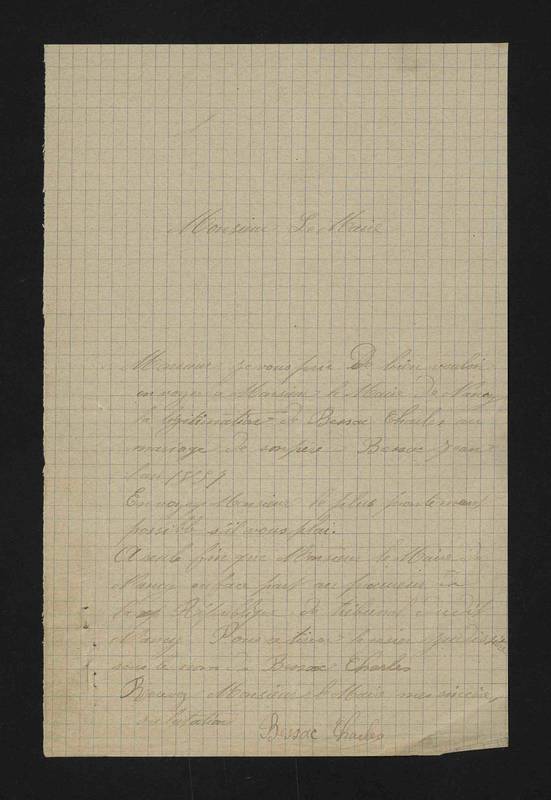 Monsieur Le Maire
Monsieur je vous prie De bien vouloir
envoyer a Monsieur le Maire de Nancy
la légitimation de Bessac Charles au
mariage de son père Bessac Jean
l'an 1859
Envoyez Monsieur le plus
possible s'il vous plai.
A seule fin que Monsieur le Maire de
Nancy en face part au procureur de
la République de tribunal
Nancy Pour
sous le nom de Bessac Charles
Recevez Monsieur le Maire mes sincères
salutations
Bessac Charles